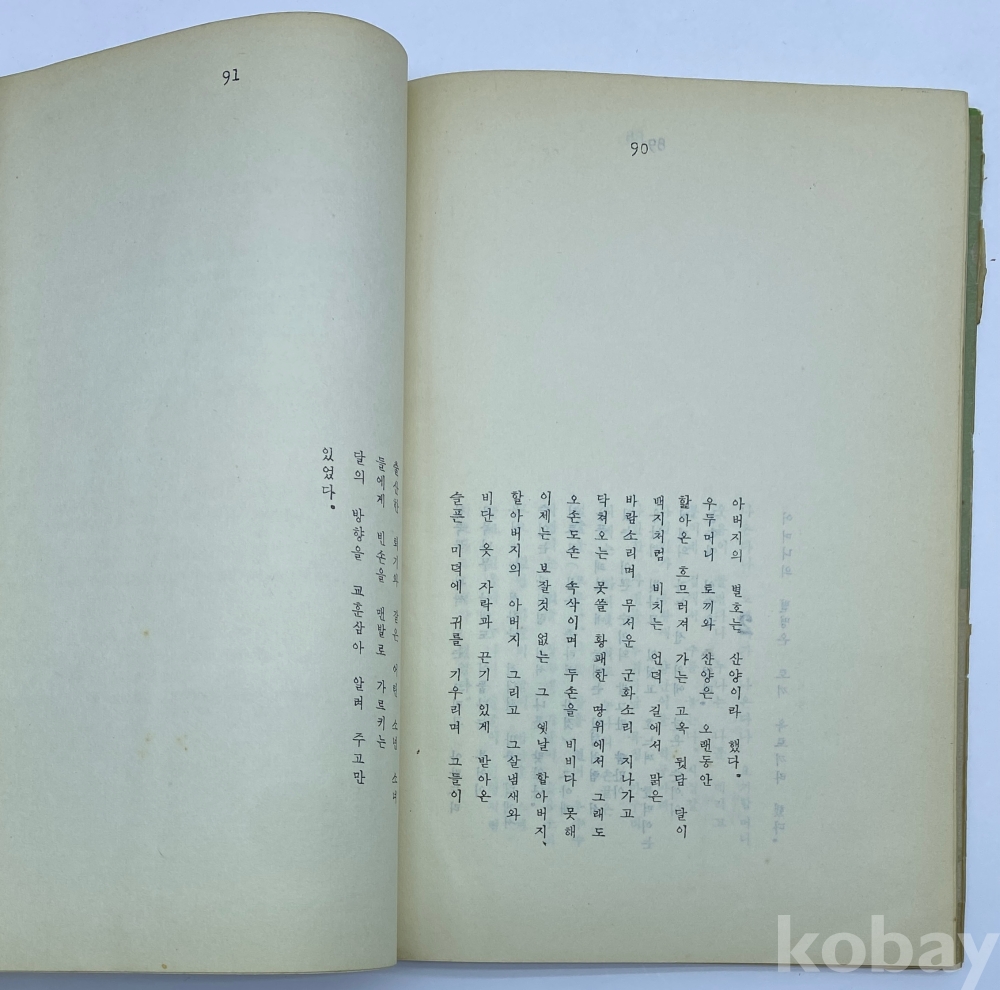 90
아버지의 별호는 산양이라 했다.
우두머니 토끼와 산양은 오랜동안
핥아온 흐므러져 가는 고옥 뒷담 달이
백지처럼 비치는 언덕 길에서 맑은
바람소리며 무서운 군화소리 지나가고
닥쳐오는 못쓸 황패한 땅위에서 그래도
오손도손 속삭이며 두손을 비비다 못해
이제는 보잘것 없는 그 옛날 할아버지、
할아버지의 아버지 그리고 그살냄새와
비단 옷 자락과 끈기 있게 받아온
슬픈 미덕에 귀를 기우리며 그들이
91
같은 어린 소년 소녀
들에게 빈손을 맨발로 가르키는
달의 방향을 교훈삼아 알려 주고만
있었다.
kobay